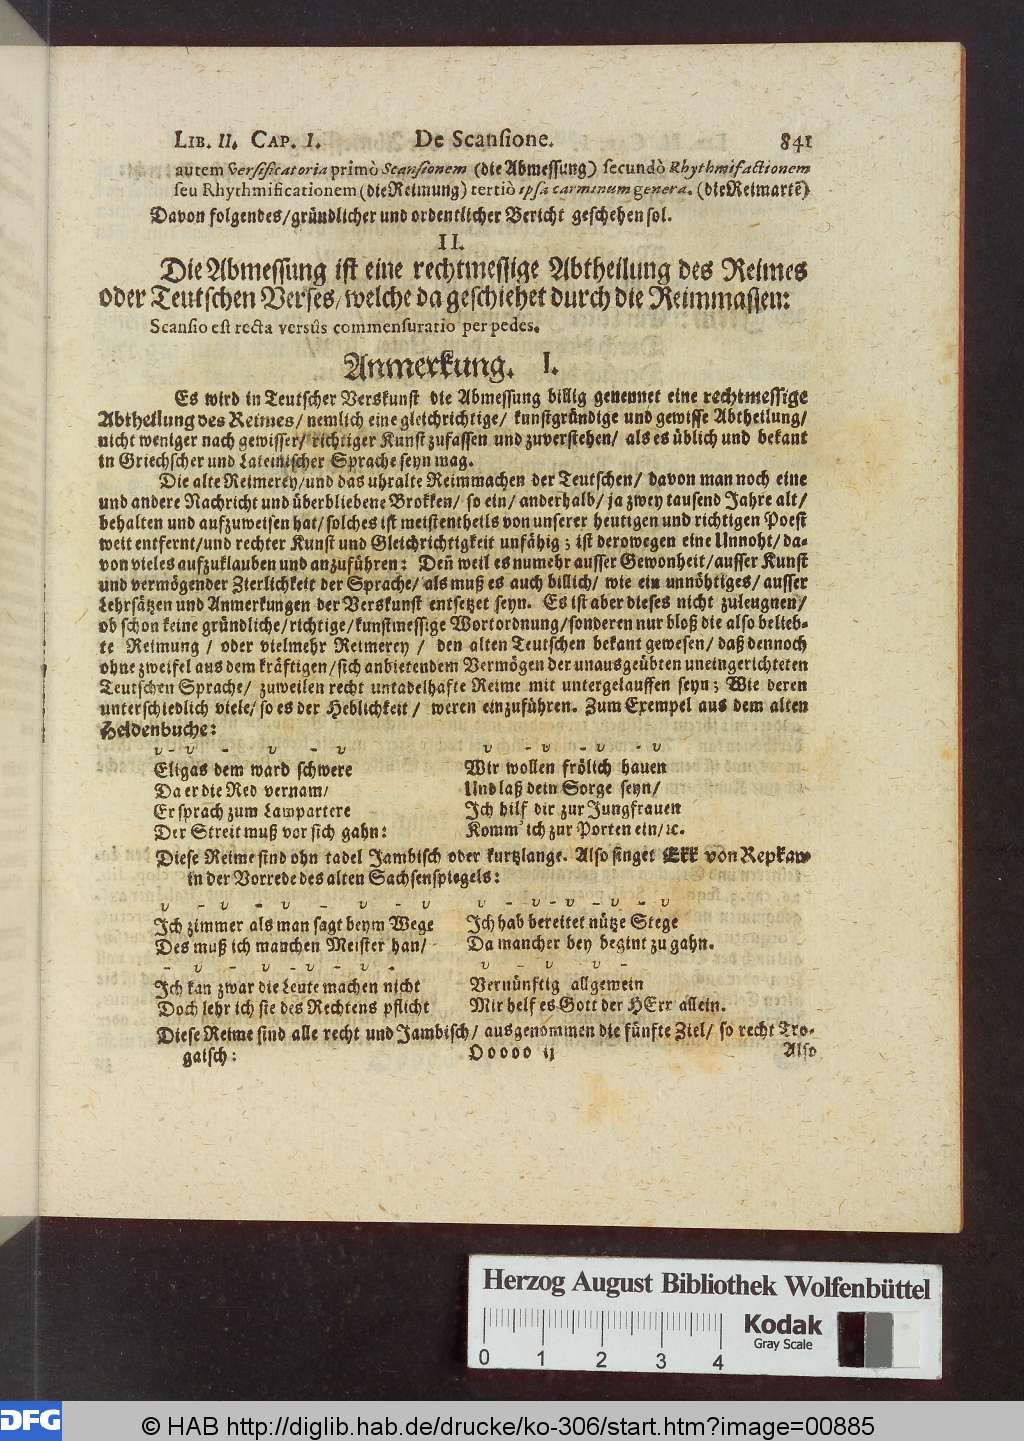 LIB. II. CAP. I. De Scansione. 841
autem Versificatoria primò Scansionem (die Abmessung) secundò Rhythmifactionem
seu Rhythmificationem (die Reimung) tertiò ipsa carminum genera. (die Reimartē)
Davon folgendes/ gründlicher und ordentlicher Bericht geschehen sol.
II.
Die Abmessung ist eine rechtmessige Abtheilung des Reimes
oder Teutschen Verses/ welche da geschiehet durch die Reimmassen:
Scansio est recta versûs commensuratio per pedes.
Anmerkung. I.
Es wird in Teutscher Verskunst die Abmessung billig genennet eine rechtmessige
Abtheilung des Reimes/ nemlich eine gleichrichtige/ kunstgründige und gewisse Abtheilung/
nicht weniger nach gewisser/ richtiger Kunst zufassen und zuverstehen/ als es üblich und bekant
in Griechscher und Lateinischer Sprache seyn mag.
Die alte Reimerey/ und das uhralte Reimmachen der Teutschen/ davon man noch eine
und andere Nachricht und überbliebene Brokken/ so ein/ anderhalb/ ja zwey tausend Jahre alt/
behalten und aufzuweisen hat/ solches ist meistentheils von unserer heutigen und richtigen Poesi
weit entfernt/ und rechter Kunst und Gleichrichtigkeit unfähig; ist derowegen eine Unnoht/ da-
von vieles aufzuklauben und anzuführen: Deñ weil es numehr ausser Gewonheit/ ausser Kunst
und vermögender Zierlichkeit der Sprache/ als muß es auch billich/ wie ein unnöhtiges/ ausser
Lehrsätzen und Anmerkungen der Verskunst entsetzet seyn. Es ist aber dieses nicht zuleugnen/
ob schon keine gründliche/ richtige/ kunstmessige Wortordnung/ sonderen nur bloß die also belieb-
te Reimung / oder vielmehr Reimerey / den alten Teutschen bekant gewesen/ daß dennoch
ohne zweifel aus dem kräftigen/ sich anbietendem Vermögen der unausgeübten uneingerichteten
Teutschen Sprache/ zuweilen recht untadelhafte Reime mit untergelauffen seyn; Wie deren
unterschiedlich viele/ so es der Heblichkeit / weren einzuführen. Zum Exempel aus dem alten
Heldenbuche:
υ - υ - υ - υ
Eligas dem ward schwere
Da er die Red vernam/
Er sprach zum Lampartere
Der Streit muß vor sich gahn:
υ - υ - υ - υ
Wir wollen frölich hauen
Und laß dein Sorge seyn/
Ich hilf dir zur Jungfrauen
Komm' ich zur Porten ein/ ꝛc.
Diese Reime sind ohn tadel Jambisch oder kurtzlange. Also singet Ekk von Repkaw
in der Vorrede des alten Sachsenspiegels:
υ - υ - υ - υ - υ
Ich zimmer als man sagt beym Wege
Des muß ich manchen Meister han/
υ - υ - υ - υ - υ
Ich hab bereitet nütze Stege
Da mancher bey begint zu gahn.
- υ - υ - υ - υ -
Ich kan zwar die Leute machen nicht
Doch lehr ich sie des Rechtens pflicht
υ - υ -
Vernünftig allgemein
Mir helf es Gott der HErr allein.
Diese Reime sind alle recht und Jambisch/ ausgenommen die fünfte Ziel/ so recht Tro-
gaisch: Ooooo ij Also
Herzog August Bibliothek Wolfenbüttel
0 1 2 3 4
Kodak
Gray Scale
DFG
© HAB http://diglib.hab.de/drucke/ko-306/start.htm?image=00885